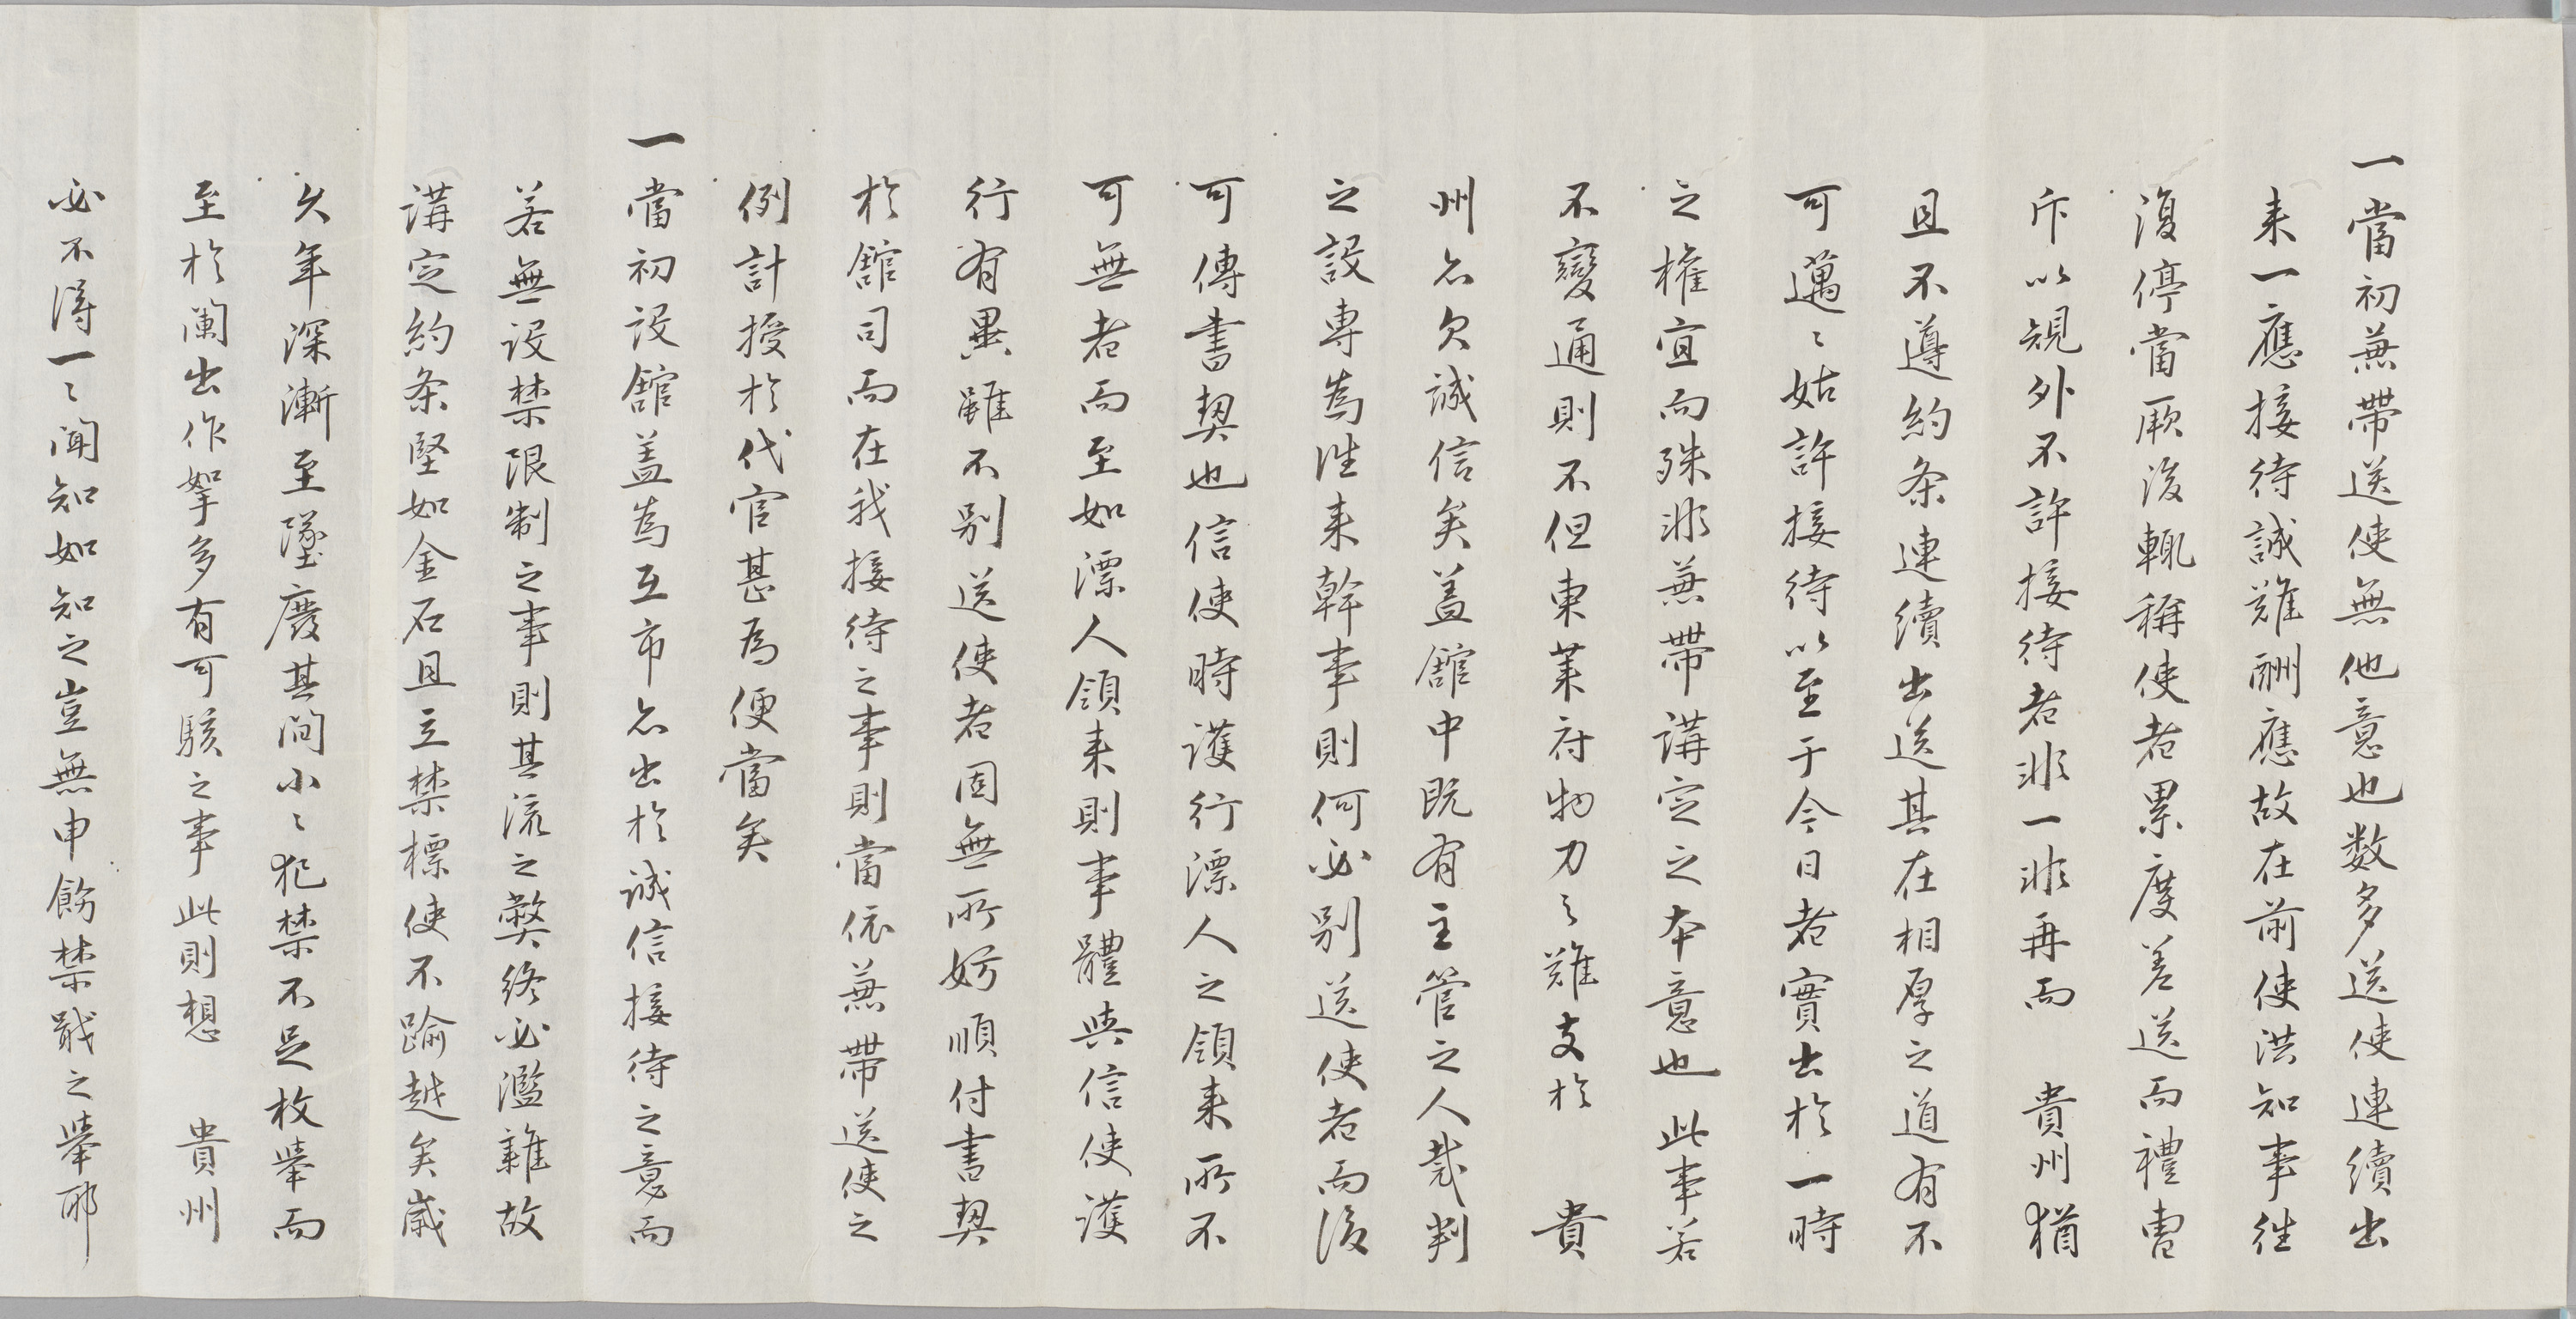 一當初兼帶送使無他意也数多送使連續出
来一應接待誠難酬應故在前使洪知事徃
復停當厥後輒稱使者累度差送而禮曹
斥以規外不許接待者非一非再而　貴州猶
且不遵約条連續出送其在相厚之道有不
可邁〻姑許接待以至于今日者實出於一時
之權宜而殊非兼帶講㝎之本意也此事若
不變通則不但東莱府物力之難支於　貴
州亦欠誠信矣盖舘中既有主管之人裁判
之設專為徃来幹事則何必別送使者而後
可傳書契也信使時護行漂人之領来所不
可無者而至如漂人領来則事體與信使護
行有異雖不別送使者固無所妨順付書契
於舘司而在我接待之事則當依兼帶送使之
例計授於代官甚為便當矣
一當初設舘盖為互市亦出於誠信接待之意而
若無設禁限制之事則其流之弊終必濫雜故
講㝎約条堅如金石且立禁標使不踰越矣歲
久年深漸至墜廢其間小〻犯禁不足枚舉而
至於闌出作挐多有可駭之事此則想　貴州
必不得一〻聞知如知之豈無申飭禁戢之舉耶